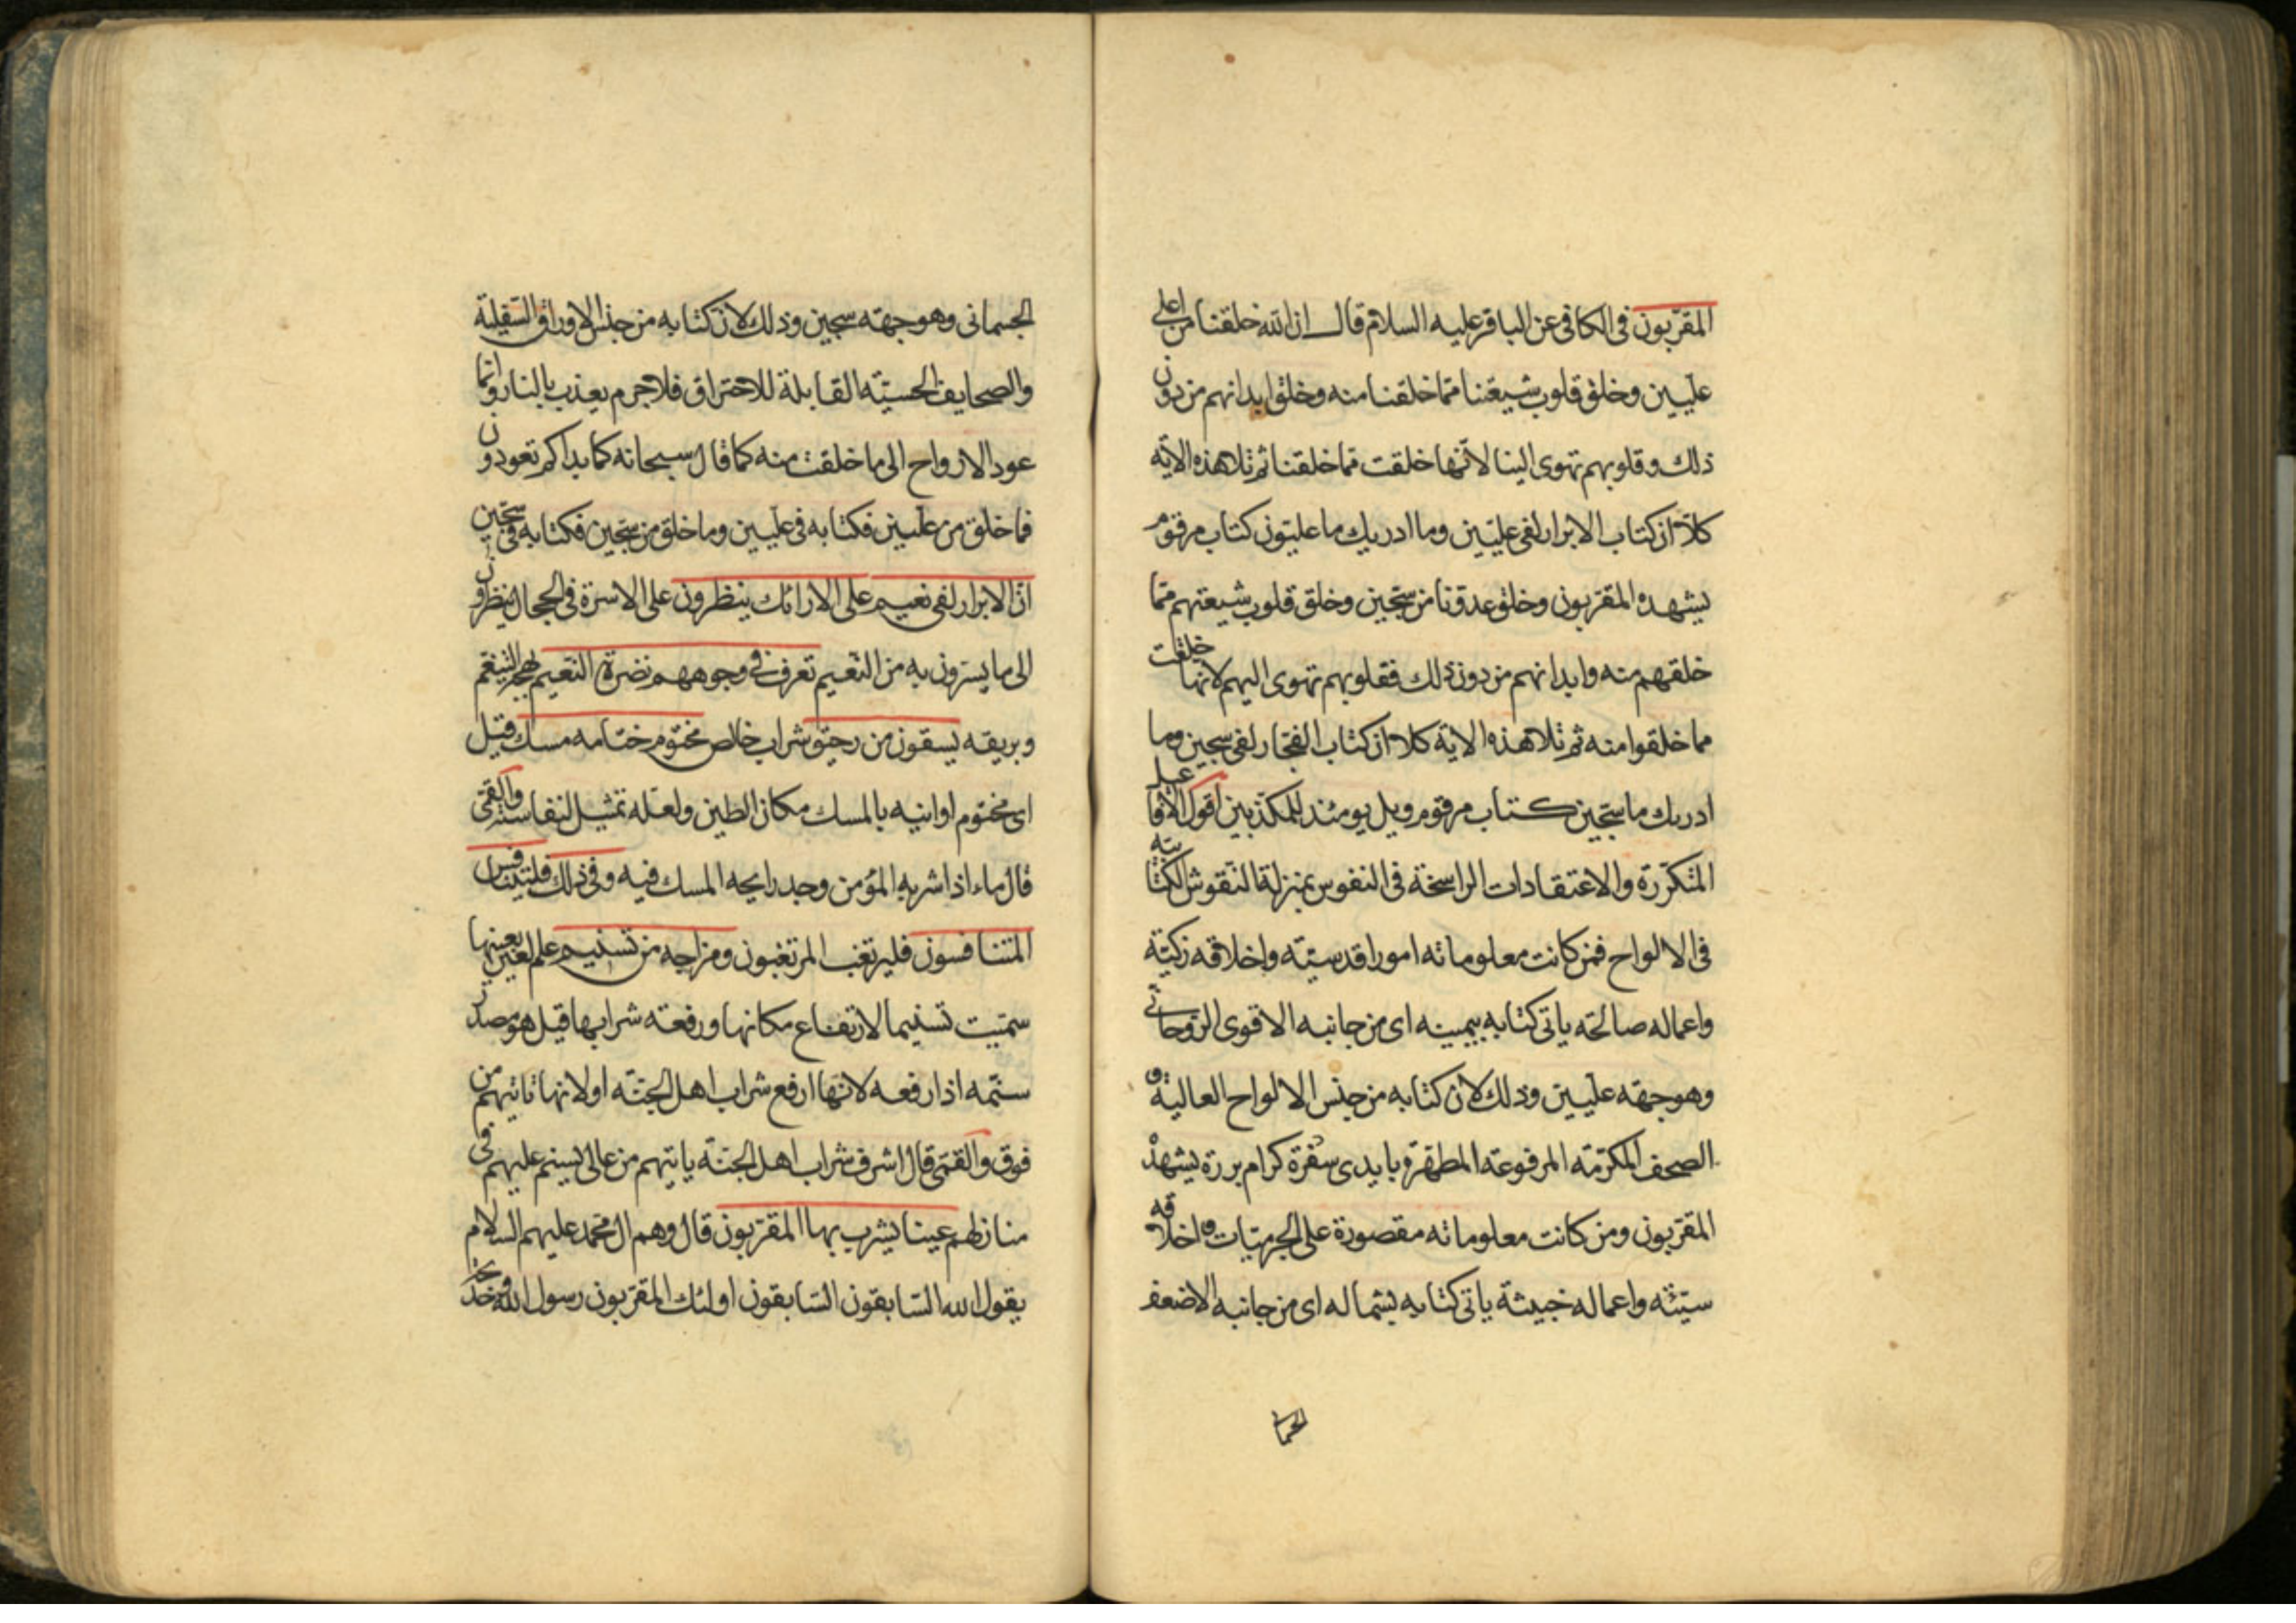 المقربون في الكافي عن الباقر عليه السلام قال ان الله خلقنا من اعلى
عليين وخلق قلوب شيعتنا مما خلقنا منه وخلق ابدانهم من دون
ذلك وقلوبهم تهوى الينا لانها خلقت مما خلقنا ثم تلا هذه الاية
كلا ان كتاب الابرار لفي عليين وما ادريك ما عليون كتاب مرقوم
يشهده المقربون وخلق عدونا من سجين وخلق قلوب شيعتهم مما
خلقهم منه وابدانهم من دون ذلك فقلوبهم تهوى اليهم لانها خلقت
مما خلقوا منه ثم تلا هذه الاية كلا ان كتاب الفجار لفي سجين وما
ادريك ما سجين كتاب مرقوم ويل يومئذ للمكذبين اقول الافاعيل
المتكررة والاعتقادات الراسخة في النفوس بمنزلة النقوش الكتابية
في الالواح فمن كانت معلوماته امورا قدسية واخلاقه زكية
واعماله صالحة ياتي كتابه بيمينه اى من جانبه الاقوى الروحاني
وهو جهة عليين وذلك لان كتابه من جنس الالواح العالية و
الصحف المكرمة المرفوعة المطهرة بايدى سفرة كرام بررة يشهده
المقربون ومن كانت معلوماته مقصورة على الجرميات واخلاقه
سيئة واعماله خبيثة ياتي كتابه بشماله اى من جانبه الاضعف
الجسما
الجسماني وهو جهة سجين وذلك لان كتابه من جنس الاوراق السفلية
والصحايف الحسية القابلة للاحتراق فلا جرم يعذب بالنار وانما
عود الارواح الى ما خلقت منه كما قال سبحانه كما بداكم تعودون
فما خلق من عليين فكتابه في عليين وما خلق من سجين فكتابه في سجين
ان الابرار لفي نعيم على الارائك ينظرون على الاسرة في الحجال ينظرون
الى ما يسرون به من النعيم تعرف في وجوههم نضرة النعيم بهجة التنعم
وبريقه يسقون من رحيق شراب خالص مختوم ختامه مسك قيل
اى مختوم اوانيه بالمسك مكان الطين ولعله تمثيل لنفاسته والقمى
قال ماء اذا شربه المؤمن وجد رايحة المسك فيه وفي ذلك فليتنافس
المتنافسون فليرتغب المرتغبون ومزاجه من تسنيم علم لعين بعينها
سميت تسنيما لارتفاع مكانها ورفعة شرابها قيل هو مصدر
سنمه اذا رفعه لانها ارفع شراب اهل الجنة او لانها تاتيهم من
فوق والقمى قال اشرف شراب اهل الجنة ياتيهم من عالى يسنم عليهم في
منازلهم عينا يشرب بها المقربون قال وهم ال محمد عليهم السلام
يقول الله السابقون السابقون اولئك المقربون رسول الله وخديجة